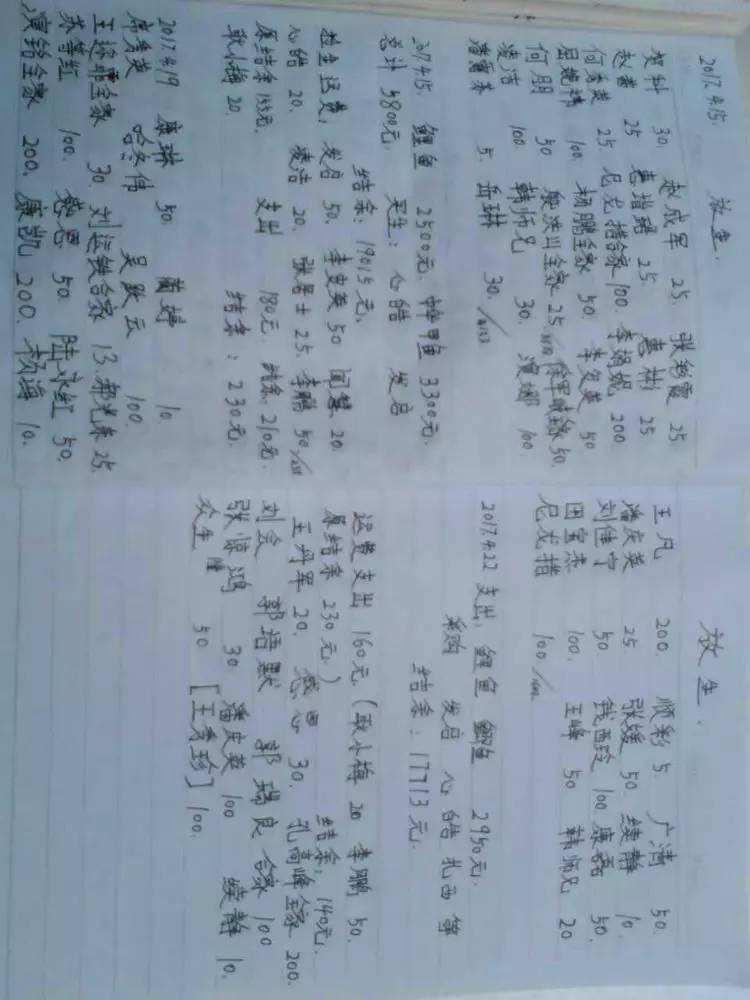 2017.4.15. 放生.
贺科 30. 赵成军 25. 张彩霞 25.
赵蕾 25 惠增琚 25. 惠彬 25
何秀英 25. 尼龙措合家 100. 李娟妮 200
屈晓祎 100. 杨鹏全家 50. 李多英 50
何朋 50 鲍洪川全家 25 徐军 50.
凌洁 100. 韩师兄 30. 漠娜 100.
潘雷 5. 岳琳 30.
2017.4.15. 鲤鱼 2500元. 甲鱼 3300元.
总计 5800元. 买生: 心皓 发启
结余: 19015元.
放生运费: 发启 50. 李史英 50 闫慧 20
心皓 20. 凌洁 20. 张居士 25. 李鹏 50
原结余 155元. 支出 180元. 结余 210元.
耿小梅 20. 结余: 230元.
2017.4.19 康琳 50. 蔺婷 10
席秀英 伟 吴跃云 100
王 全家 30. 刘运铁合家 13. 郝光东 25.
苏等红 100. 感恩 50. 陆永红 50.
演铭全家 200. 康凯 200. 杨海 10.
放生.
王凡 200. 顺彩 5. 广清 50.
潘庆英 25. 张媛 50. 绫静 10.
刘佳宁 50. 钱西玲 100. 康磊 50.
田宝杰 100. 王峰 50 韩师兄 20
尼龙措 100
2017.4.22 支出: 鲤鱼 鲫鱼 2950元.
采购 发启 心皓 扎西 等
结余: 17713元.
运费支出 160元. (耿小梅 20 李鹏 50.
原结余 230元.) 结余: 140元.
王丹军 20. 感恩 30. 孔高峰全家 200.
刘会 郭培默 郭瑞良 合家 100
张惊鸿 30 潘史英 100 绫静 10.
众生 50 [王秀珍] 100.